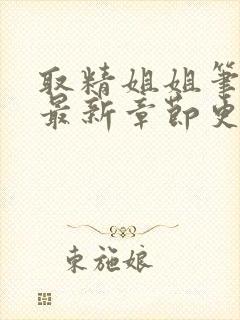 取精姐姐筆
最新章節史
東施娘